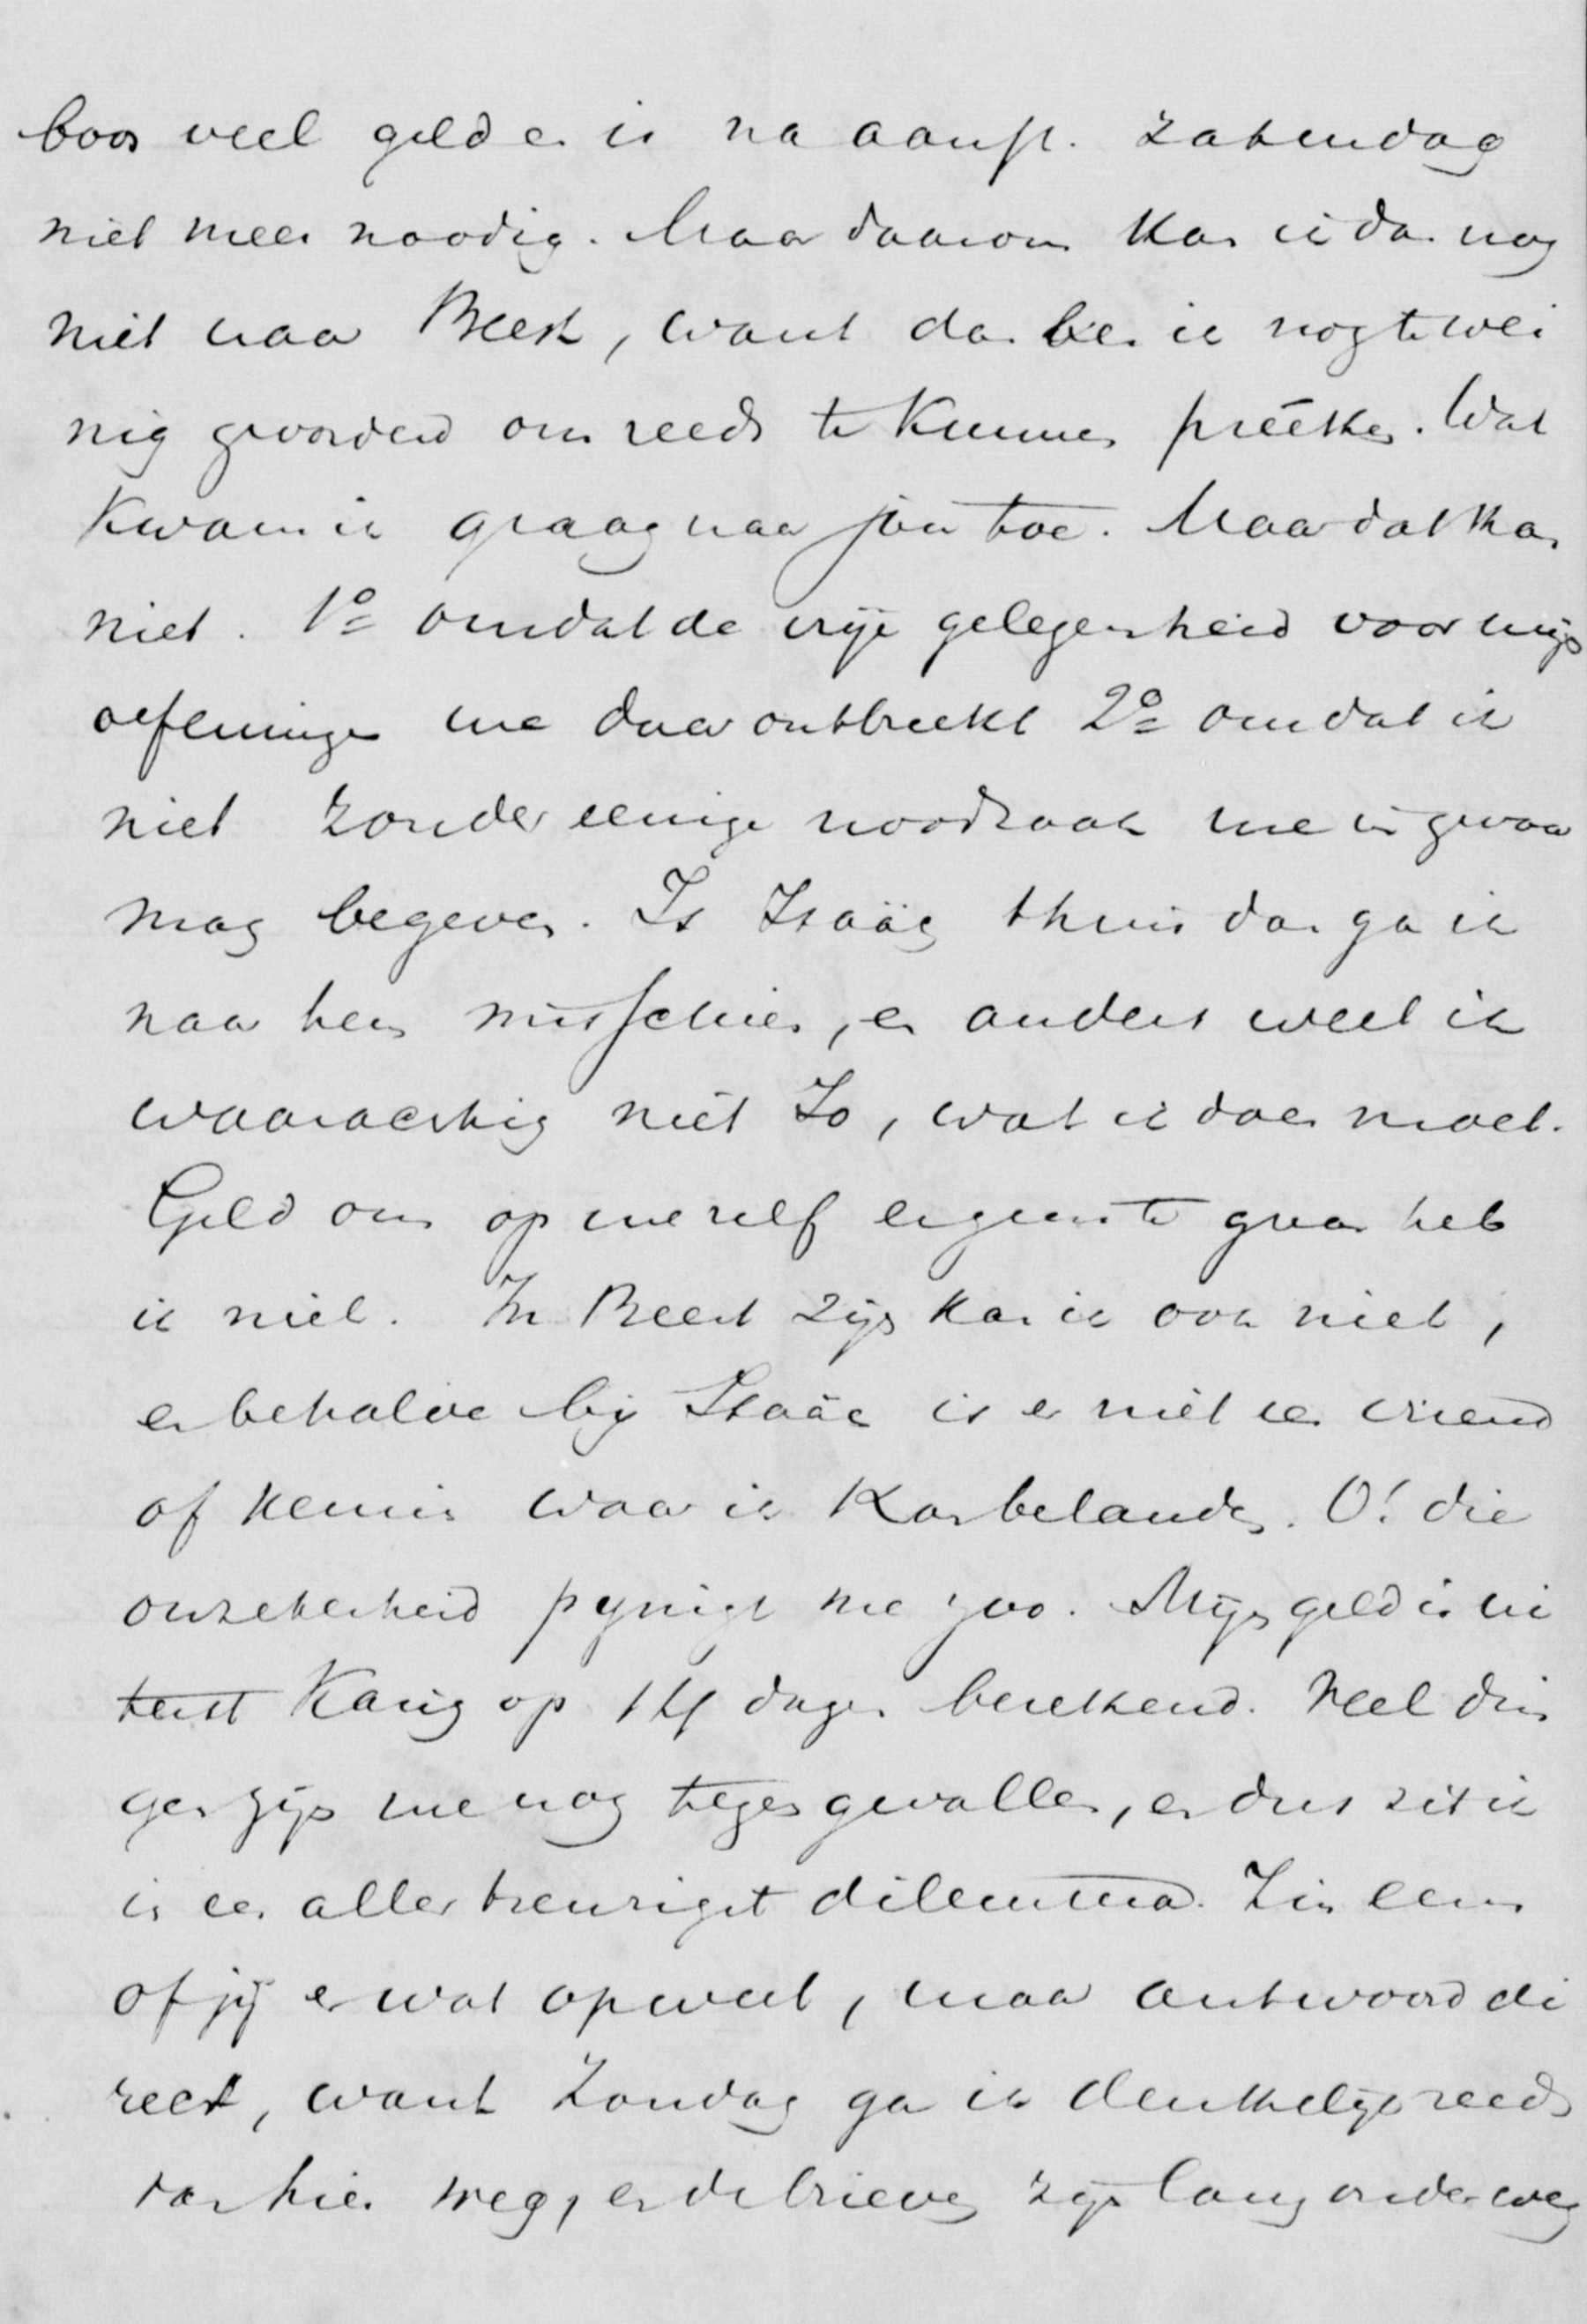 boos veel geld en is na aanst. zaturdag
niet meer noodig. Maar daarom kan ik dan nog
niet naar Beest, want dan ben ik nog te wei
nig gevorderd om reeds te kunnen préêken. Wat
kwam ik graag naar jou toe. Maar dat kan
niet. 1o omdat de vrije gelegenheid voor mijn
oefeningen me daar ontbreekt 2o omdat ik
niet zonder eenige noodzaak me in gevaar
mag begeven. Is Isaäc thuis dan ga ik
naar hem misschien, en anders weet ik
waarachtig niet Jo, wat ik doen moet.
Geld om op me zelf ergens te gaan heb
ik niet. In Beest zijn kan ik ook niet,
en behalve bij Isaäc is er niet een vriend
of kennis waar ik kan belanden. O! die
onzekerheid pynigt me zoo. Mijn geld is ui
terst karig op 14 dagen berekend. Veel din
gen zijn me nog tegen gevallen, en dus zit ik
in een aller treurigst dilemma. Zin eens
of jij er wat op weet, maar antwoord di
rect, want Zondag ga ik denkelijk reeds
van hier weg, en de brieven zijn lang onderweg